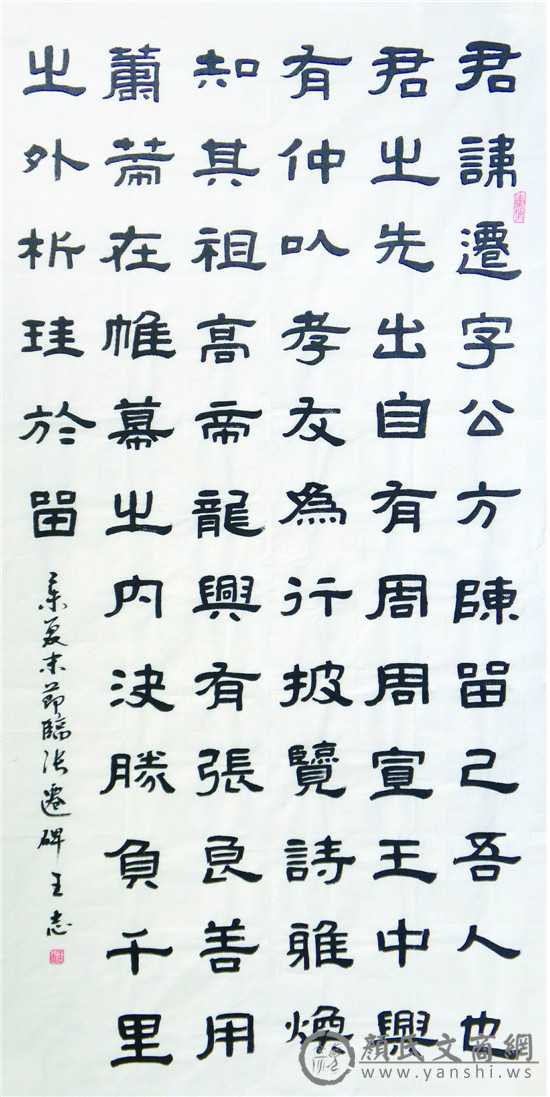 君諱遷字公方陳留己吾人也
君之先出自有周周宣王中興
有仲以孝友為行披覽詩雅煥
知其祖高帝龍興有張良善用
蕭䓣在帷幕之内決勝負千里
之外析珪於留
夏末節臨張遷碑王志
顏氏文商網
www.yanshi.ws